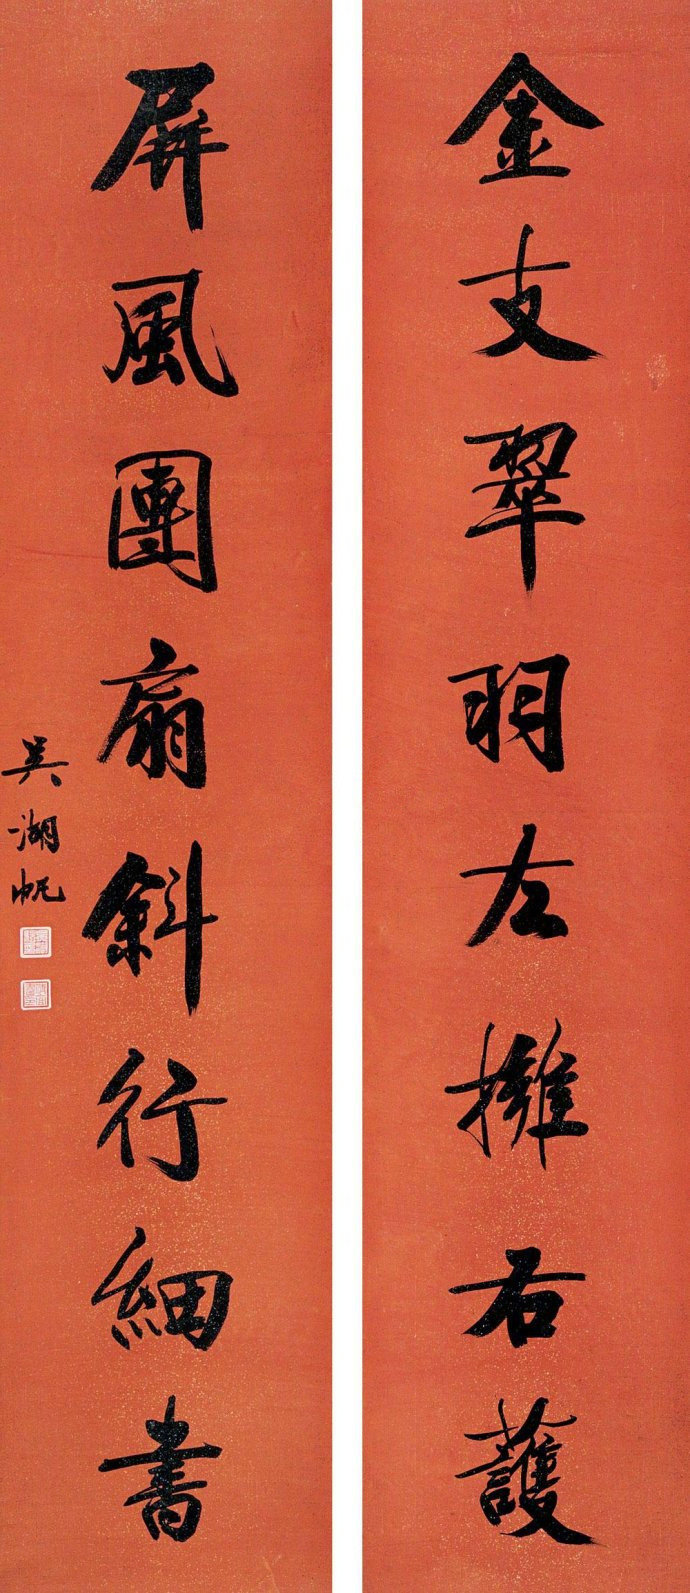 金支翠羽左擁右護
屏風團扇斜行細書
吳湖帆